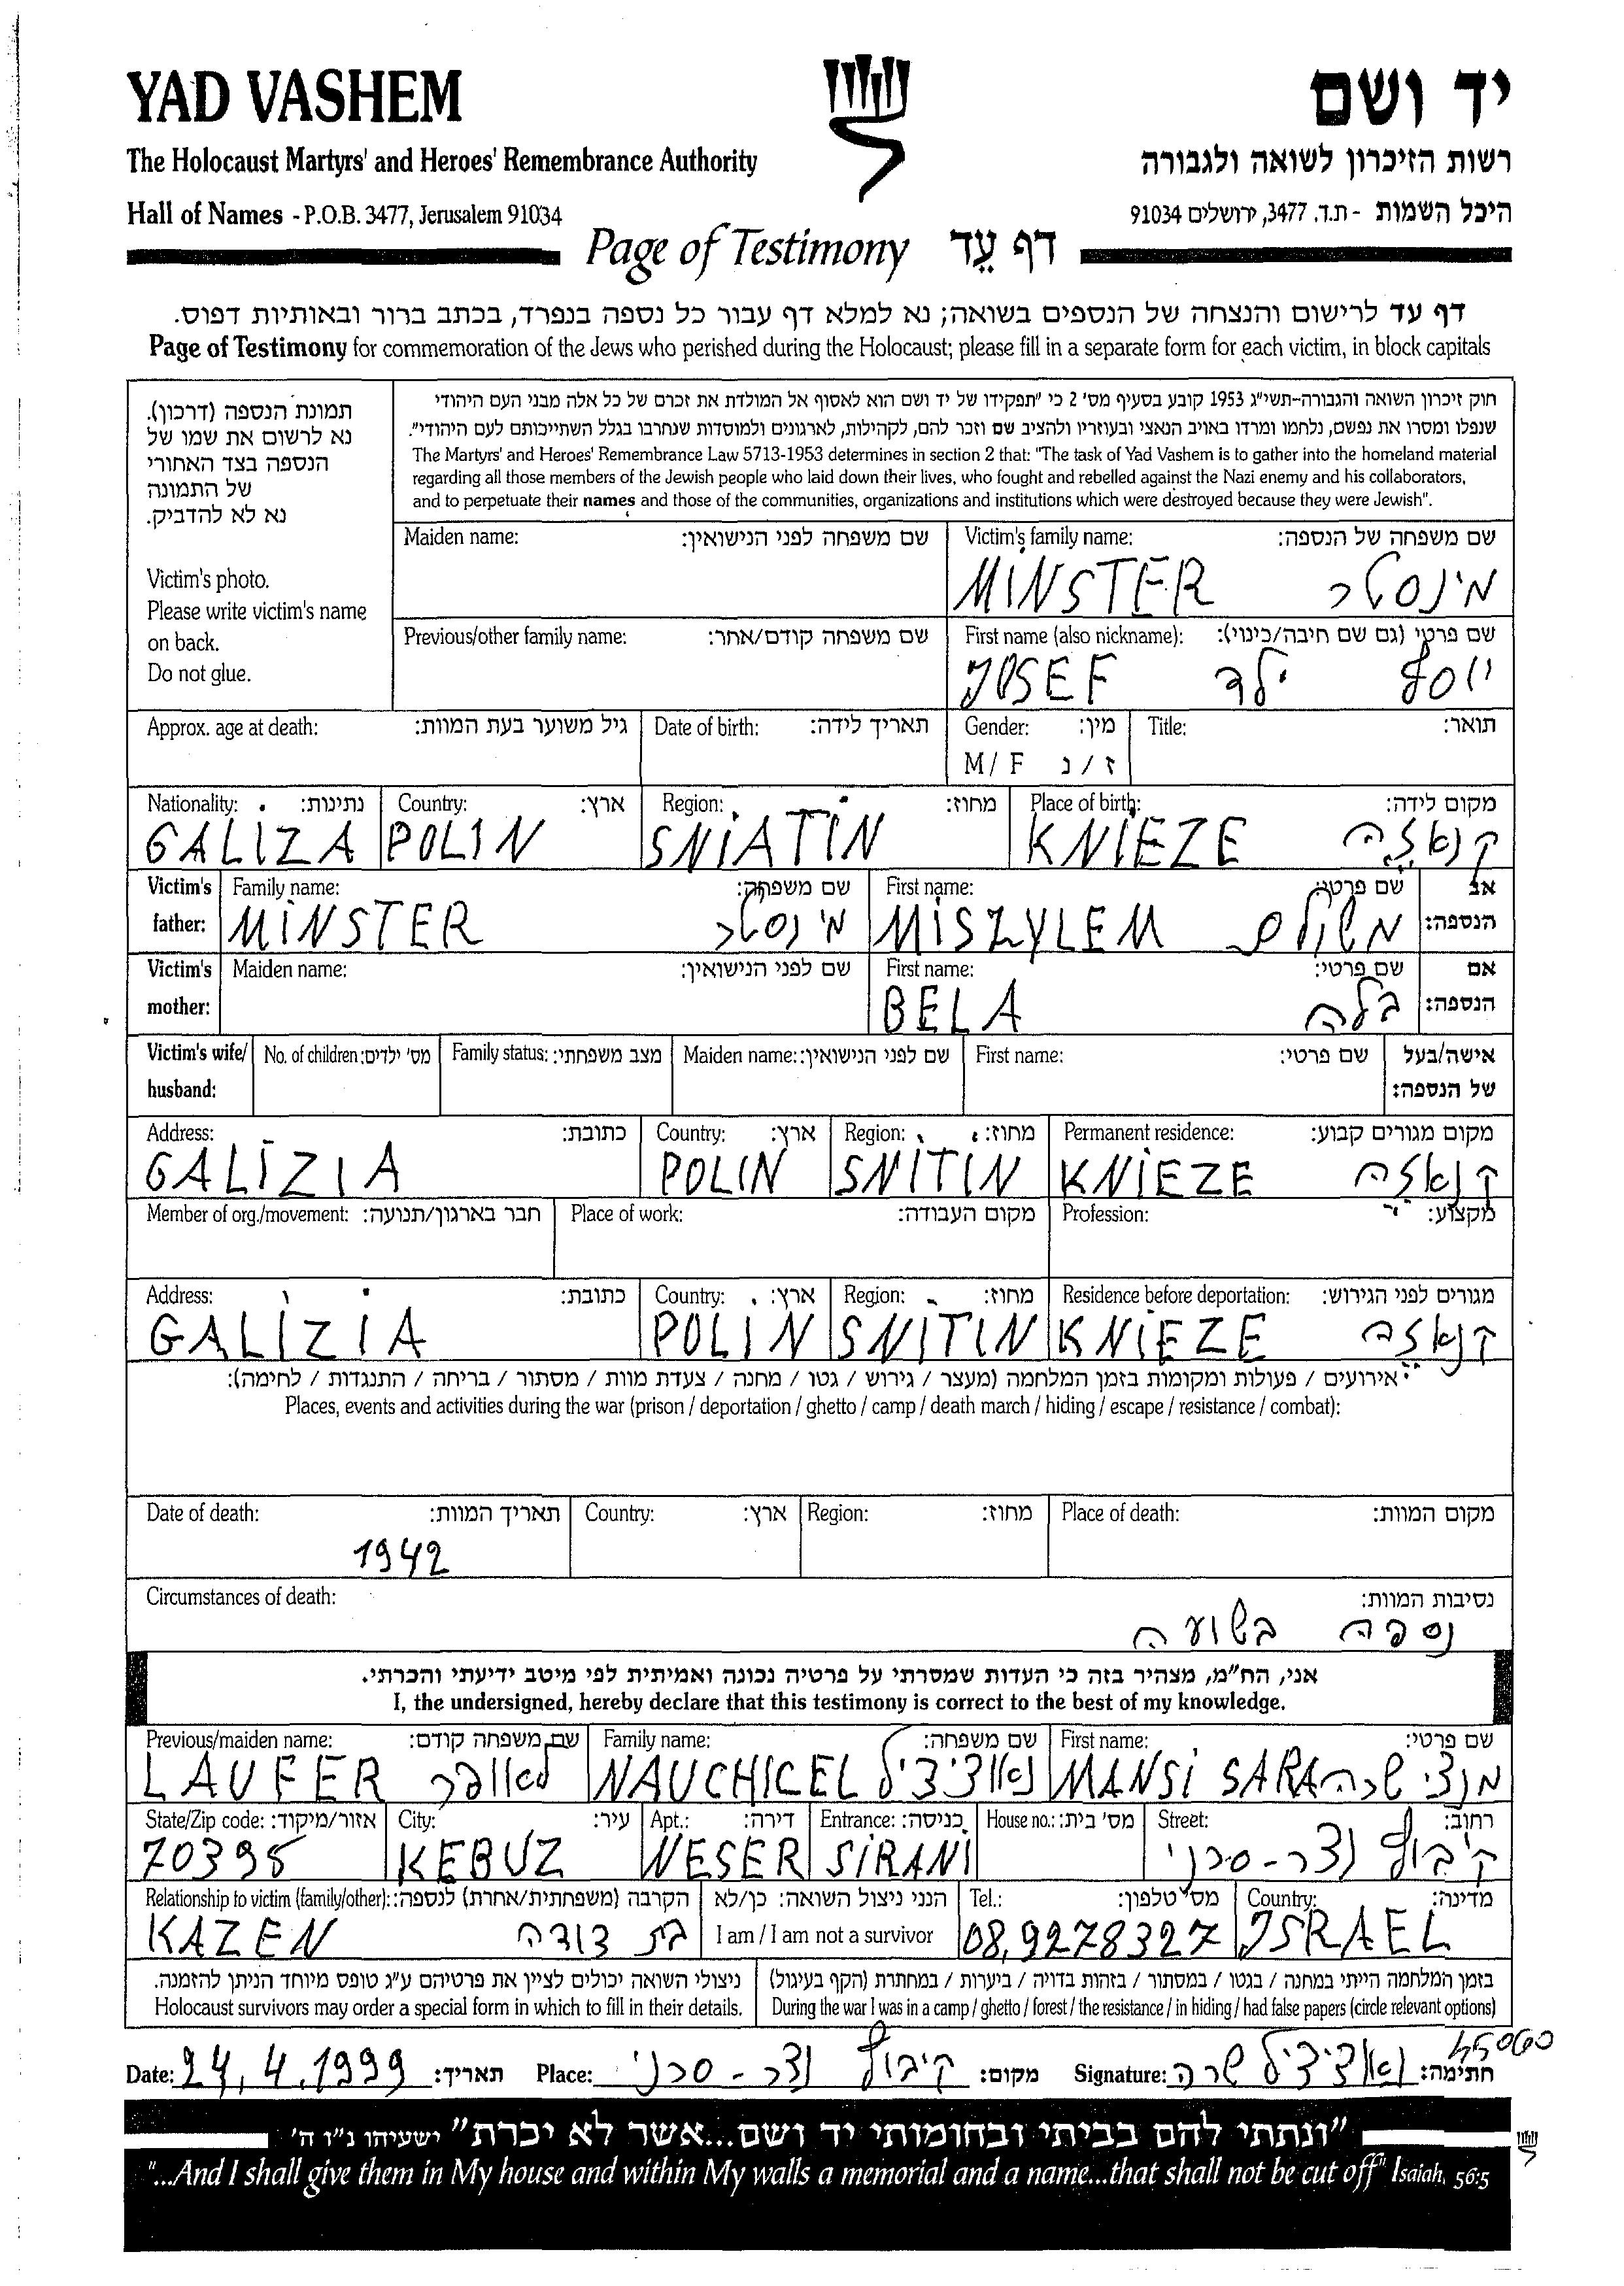 YAD VASHEM
יד ושם
The Holocaust Martyrs' and Heroes' Remembrance Authority
רשות הזיכרון לשואה ולגבורה
Hall of Names - P.O.B. 3477, Jerusalem 91034
היכל השמות - ת.ד. 3477, ירושלים 91034
Page of Testimony דף עֵד
דף עד לרישום והנצחה של הנספים בשואה; נא למלא דף עבור כל נספה בנפרד, בכתב ברור ובאותיות דפוס.
Page of Testimony for commemoration of the Jews who perished during the Holocaust; please fill in a separate form for each victim, in block capitals
תמונת הנספה (דרכון).
נא לרשום את שמו של
הנספה בצד האחורי
של התמונה
נא לא להדביק.
Victim's photo.
Please write victim's name
on back.
Do not glue.
חוק זיכרון השואה והגבורה-תשי"ג 1953 קובע בסעיף מס' 2 כי "תפקידו של יד ושם הוא לאסוף אל המולדת את זכרם של כל אלה מבני העם היהודי
שנפלו ומסרו את נפשם, נלחמו ומרדו באויב הנאצי ובעוזריו ולהציב שם וזכר להם, לקהילות, לארגונים ולמוסדות שנחרבו בגלל השתייכותם לעם היהודי".
The Martyrs' and Heroes' Remembrance Law 5713-1953 determines in section 2 that: "The task of Yad Vashem is to gather into the homeland material
regarding all those members of the Jewish people who laid down their lives, who fought and rebelled against the Nazi enemy and his collaborators,
and to perpetuate their names and those of the communities, organizations and institutions which were destroyed because they were Jewish".
Maiden name: שם משפחה לפני הנישואין:
Victim's family name: שם משפחה של הנספה:
MINSTER מינסטר
Previous/other family name: שם משפחה קודם/אחר:
First name (also nickname): שם פרטי (גם שם חיבה/כינוי):
JOSEF ילד יוסף
Approx. age at death: גיל משוער בעת המוות:
Date of birth: תאריך לידה:
Gender: מין:
M / F ז / נ
Title: תואר:
Nationality: נתינות: Country: ארץ: Region: מחוז: Place of birth: מקום לידה:
GALIZA POLIN SNIATIN KNIEZE קנאזה
Victim's father: Family name: שם משפחה: First name: שם פרטי: אב הנספה:
MINSTER מינסטר MISZYLEM משולם
Victim's mother: Maiden name: שם לפני הנישואין: First name: שם פרטי: אם הנספה:
BELA בלה
Victim's wife/ husband: No. of children: מס' ילדים: Family status: מצב משפחתי: Maiden name: שם לפני הנישואין: First name: שם פרטי: אישה/בעל של הנספה:
Address: כתובת: Country: ארץ: Region: מחוז: Permanent residence: מקום מגורים קבוע:
GALIZIA POLIN SNITIN KNIEZE קנאזה
Member of org./movement: חבר בארגון/תנועה: Place of work: מקום העבודה: Profession: מקצוע:
Address: כתובת: Country: ארץ: Region: מחוז: Residence before deportation: מגורים לפני הגירוש:
GALIZIA POLIN SNITIN KNIEZE קנאזה
אירועים / פעולות ומקומות בזמן המלחמה (מעצר / גירוש / גטו / מחנה / צעדת מוות / מסתור / בריחה / התנגדות / לחימה):
Places, events and activities during the war (prison / deportation / ghetto / camp / death march / hiding / escape / resistance / combat):
Date of death: תאריך המוות: Country: ארץ: Region: מחוז: Place of death: מקום המוות:
1942
Circumstances of death: נסיבות המוות:
נספה בשועה
אני, הח"מ, מצהיר בזה כי העדות שמסרתי על פרטיה נכונה ואמיתית לפי מיטב ידיעתי והכרתי.
I, the undersigned, hereby declare that this testimony is correct to the best of my knowledge.
Previous/maiden name: שם משפחה קודם: Family name: שם משפחה: First name: שם פרטי:
LAUFER לאופר NAUCHICEL נאוציציל MANSI SARA מנצי שרה
State/Zip code: אזור/מיקוד: City: עיר: Apt.: דירה: Entrance: כניסה: House no.: מס' בית: Street: רחוב:
70395 KEBUZ NESER SIRANI קיבוץ נצר-סרני
Relationship to victim (family/other): הקרבה (משפחתית/אחרת) לנספה: הנני ניצול השואה: כן/לא Tel.: מס' טלפון: Country: מדינה:
KAZEN בת דודה I am / I am not a survivor 08,9278327 ISRAEL
ניצולי השואה יכולים לציין את פרטיהם ע"ג טופס מיוחד הניתן להזמנה.
Holocaust survivors may order a special form in which to fill in their details.
בזמן המלחמה הייתי במחנה / בגטו / במסתור / בזהות בדויה / ביערות / במחתרת (הקף בעיגול)
During the war I was in a camp / ghetto / forest / the resistance / in hiding / had false papers (circle relevant options)
45060
Date: 24.4.1999 תאריך: Place: קיבוץ נצר-סרני מקום: Signature: נאוציציל שרה חתימה:
"ונתתי להם בביתי ובחומותי יד ושם...אשר לא יכרת" ישעיהו נ"ו ה'
"...And I shall give them in My house and within My walls a memorial and a name...that shall not be cut off" Isaiah, 56:5